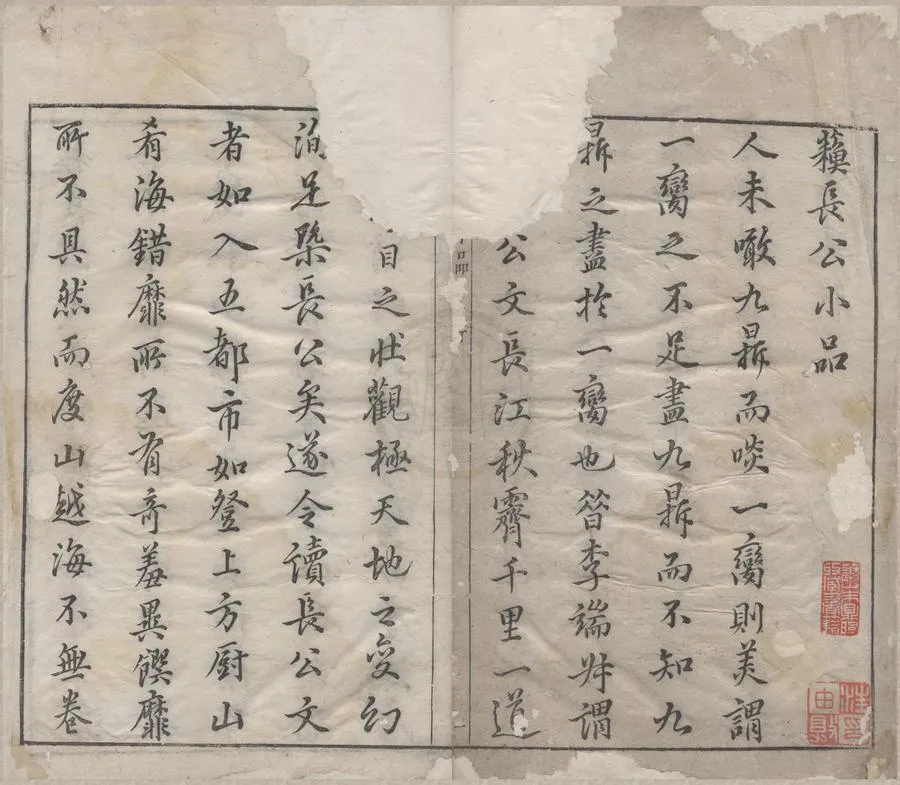 蘓長公小品
人未噉九鼎而啖一臠則美謂
一臠之不足盡九鼎而不知九
鼎之盡扵一臠也昔李端叔謂
公文長江秋霽千里一道
品
一
目之壯觀極天地之變幻
足槩長公矣遂令讀長公文
者如入五都市如登上方厨山
肴海錯靡所不有奇羞異饌靡
所不具然而度山越海不無卷